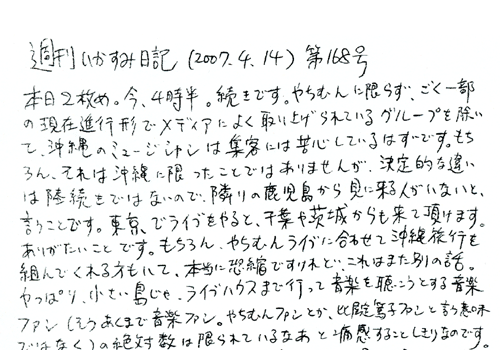 週刊いかすみ日記(2007.4.14)第168号
本日2枚め。今、4時半。続きです。やちむんに限らず、ごく一部
の現在進行形でメディアによく取り上げられているグループを除い
て、沖縄のミュージシャンは集客には苦心しているはずです。もち
ろん、それは沖縄に限ったことではありませんが、決定的な違い
は陸続きではないので、隣りの鹿児島から見に来る人がいないと、
言うことです。東京でライブをやると、千葉や茨城からも来て頂けます。
ありがたいことです。もちろん、やちむんライブに合わせて沖縄旅行を
組んでくれる方もいて、本当に恐縮ですけれど、これはまた別の話。
やっぱり、小さい島じゃ、ライブハウスまで行って音楽を聴こうとする音楽
ファン(そうあくまで音楽ファン。やちむんファンとか、比屋定篤子ファンと言う意味
ではなく)の絶対数は限られているなあと痛感することしきりなのです。